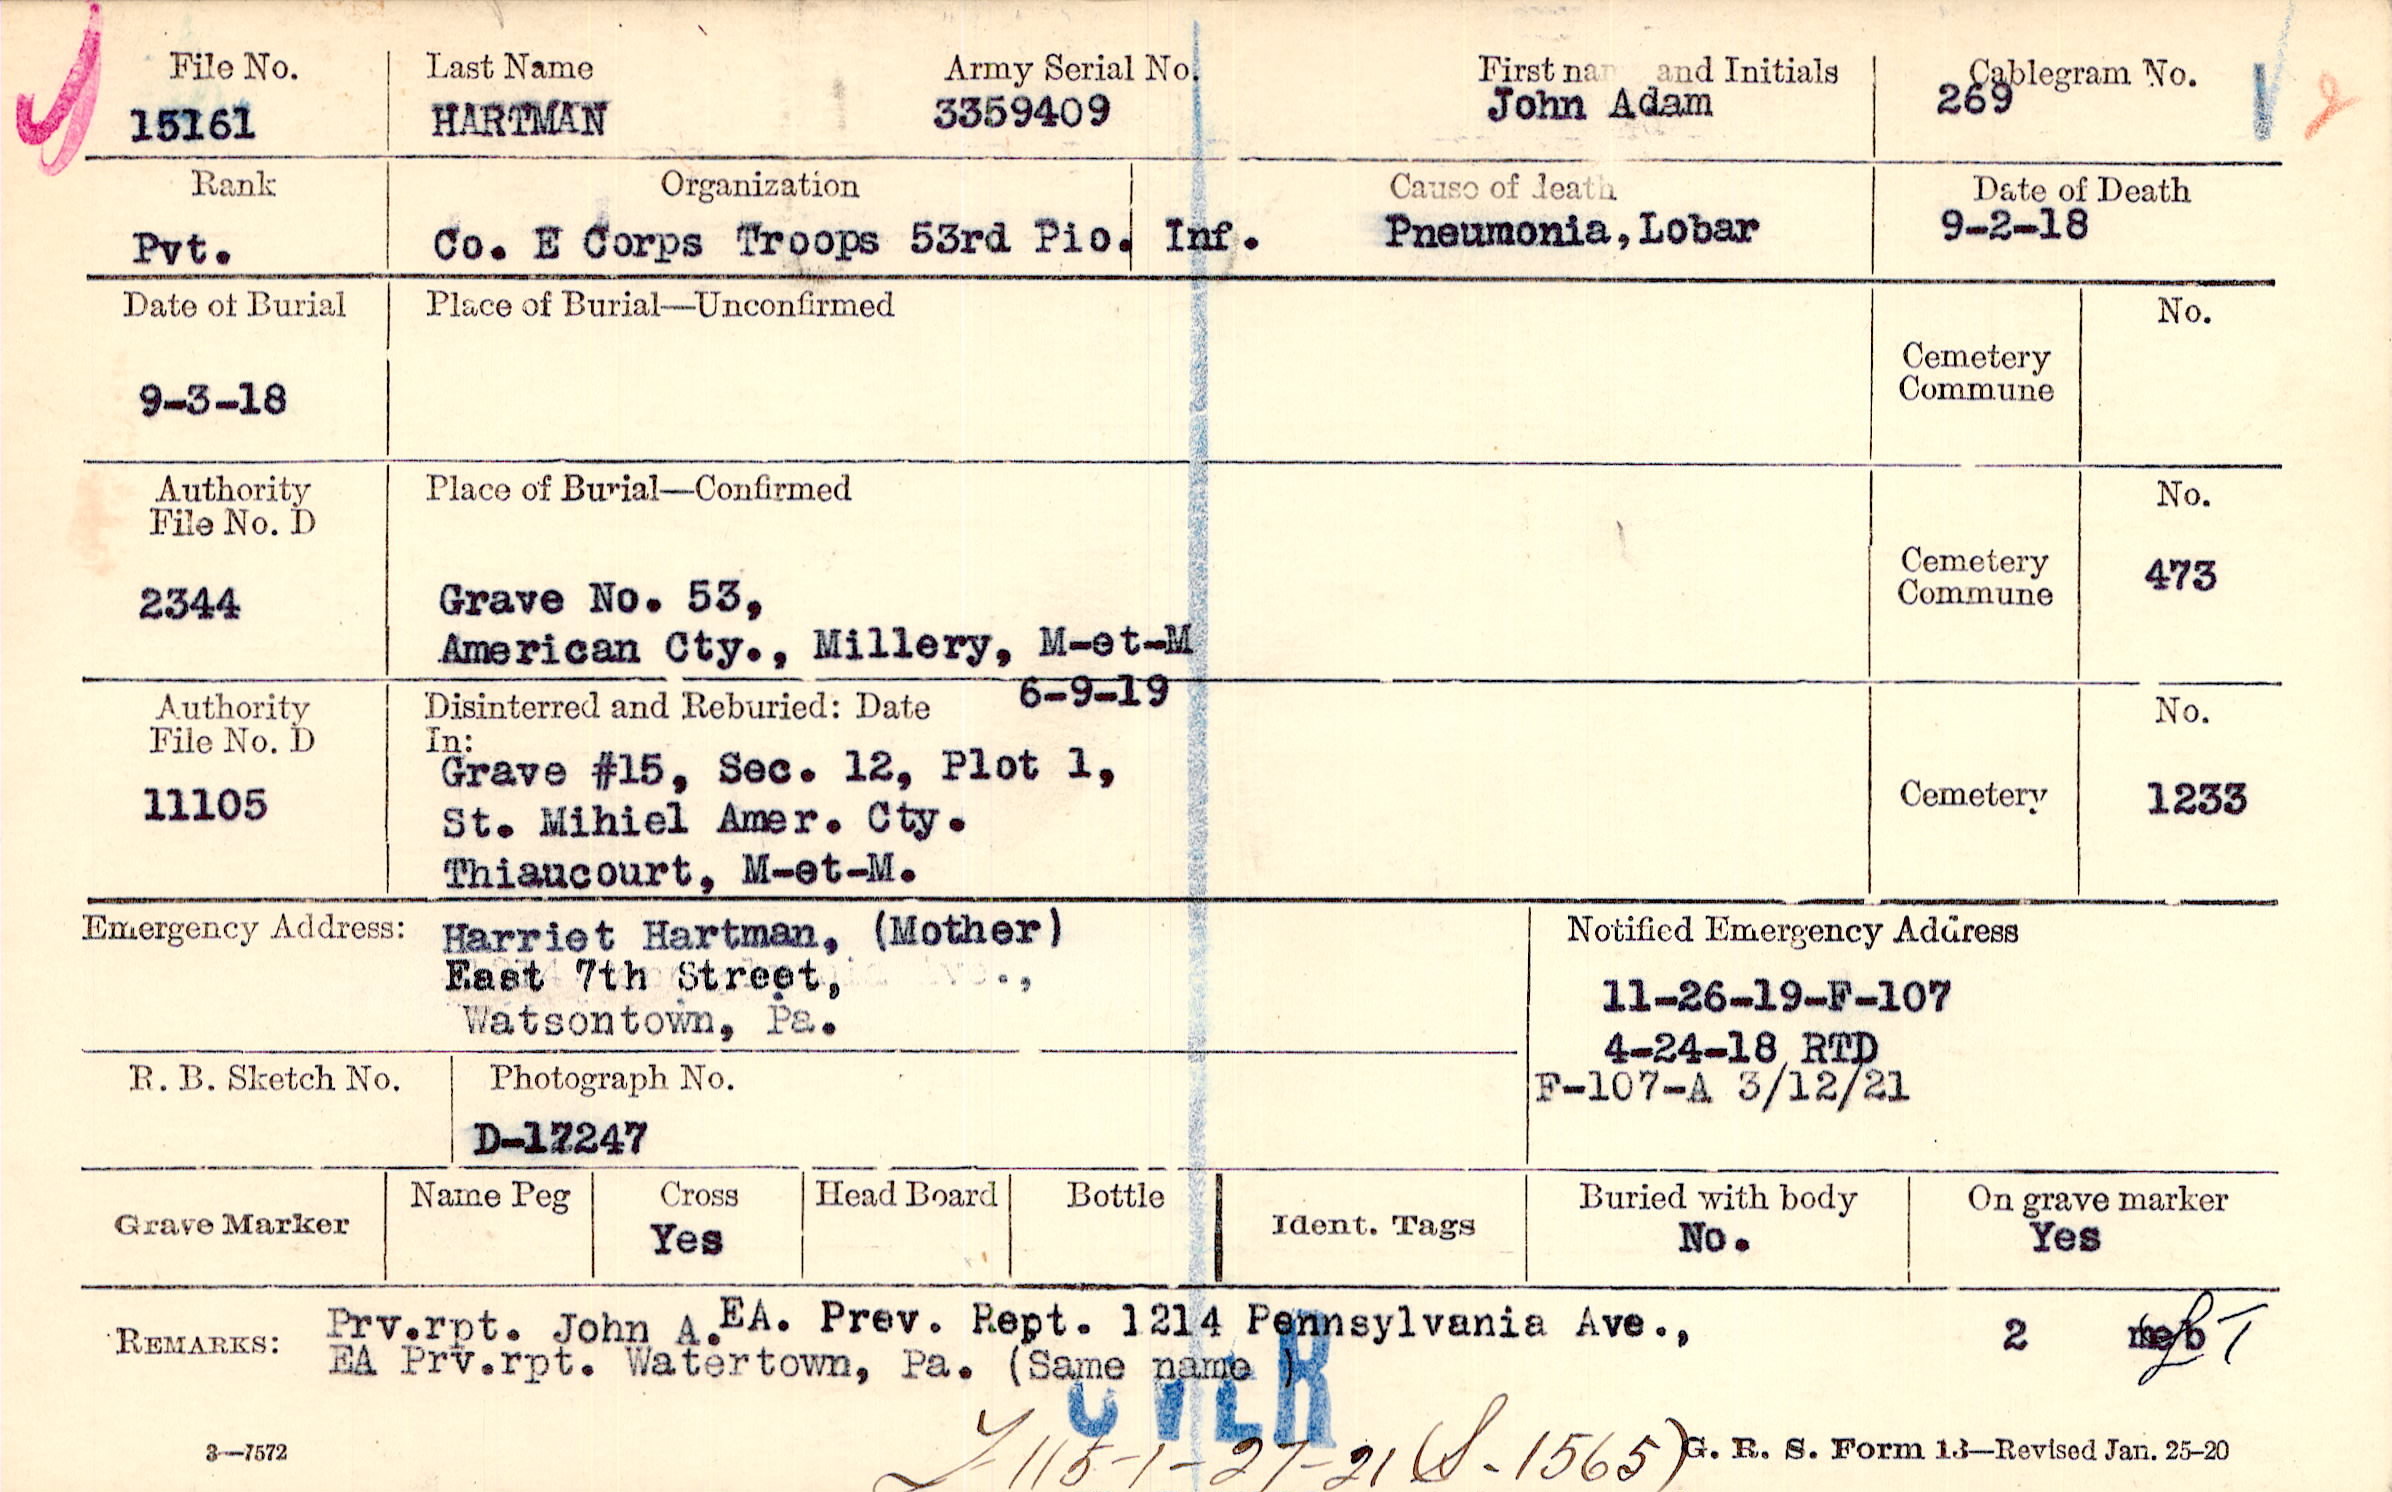 File No. Last Name Army Serial No. First and Initials Cablegram No.
15161 HARTMAN 3359409 John Adam 269
2
Rank Organization Cause of death Date of Death
Pvt. Co. E Corps Troops 53rd Pio. Inf. Pneumonia, Lobar 9-2-18
Date of Burial Place of Burial—Unconfirmed No.
Cemetery
Commune
9-3-18
Authority Place of Burial—Confirmed No.
File No. D
Cemetery
Commune 473
2344 Grave No. 53,
American Cty., Millery, M-et-M
Authority Disinterred and Reburied: Date 6-9-19 No.
File No. D In:
11105 Grave #15, Sec. 12, Plot 1, Cemetery 1233
St. Mihiel Amer. Cty.
Thiaucourt, M-et-M.
Emergency Address: Harriet Hartman, (Mother) Notified Emergency Address
East 7th Street,
Watsontown, Pa.
11-26-19-F-107
4-24-18 RTD
F-107-A 3/12/21
R. B. Sketch No. Photograph No.
D-17247
Grave Marker Name Peg Cross Head Board Bottle Ident. Tags Buried with body On grave marker
Yes No. Yes
REMARKS: Prv.rpt. John A. EA. Prev. Rept. 1214 Pennsylvania Ave., 2
EA Prv.rpt. Watertown, Pa. (Same name )
OVER
115-1-27-21 (S-1565)
3—7572 G. R. S. Form 13—Revised Jan. 25-20